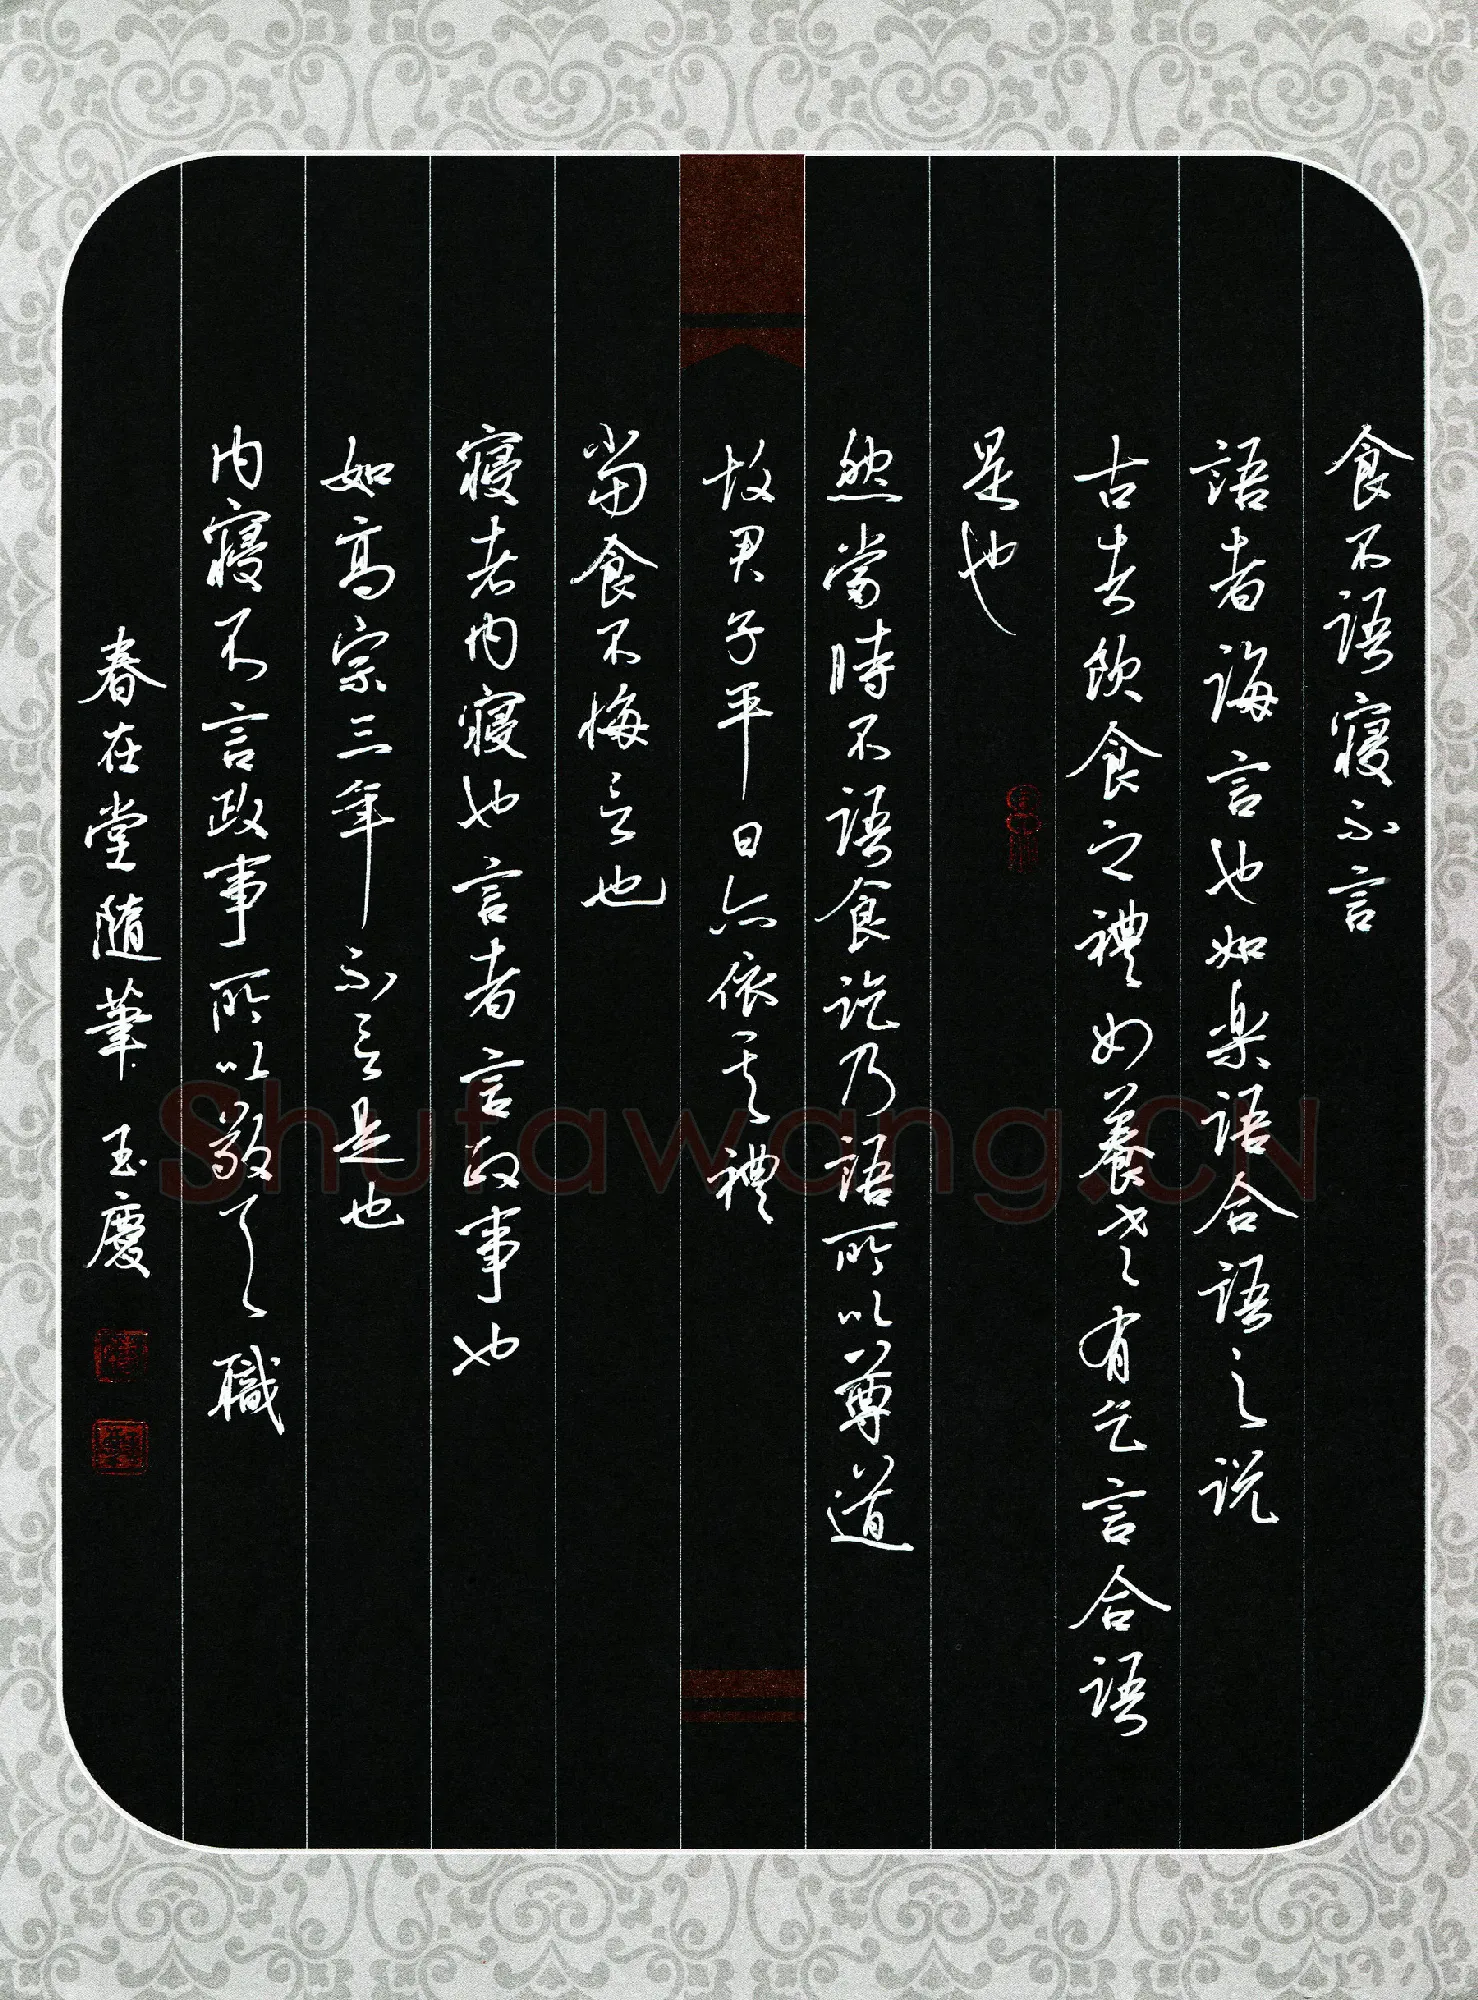 食不語寢不言
語者誨言也如楽語合語之説
古者飲食之禮如養老有乞言合語
是也
然當時不語食訖乃語所以尊道
故君子平日亦依其禮
當食不悔言也
寢者内寢也言者言政事也
如高宗三年不言是也
内寢不言政事所以敬其職
春在堂隨筆 玉慶
Shufawang.CN